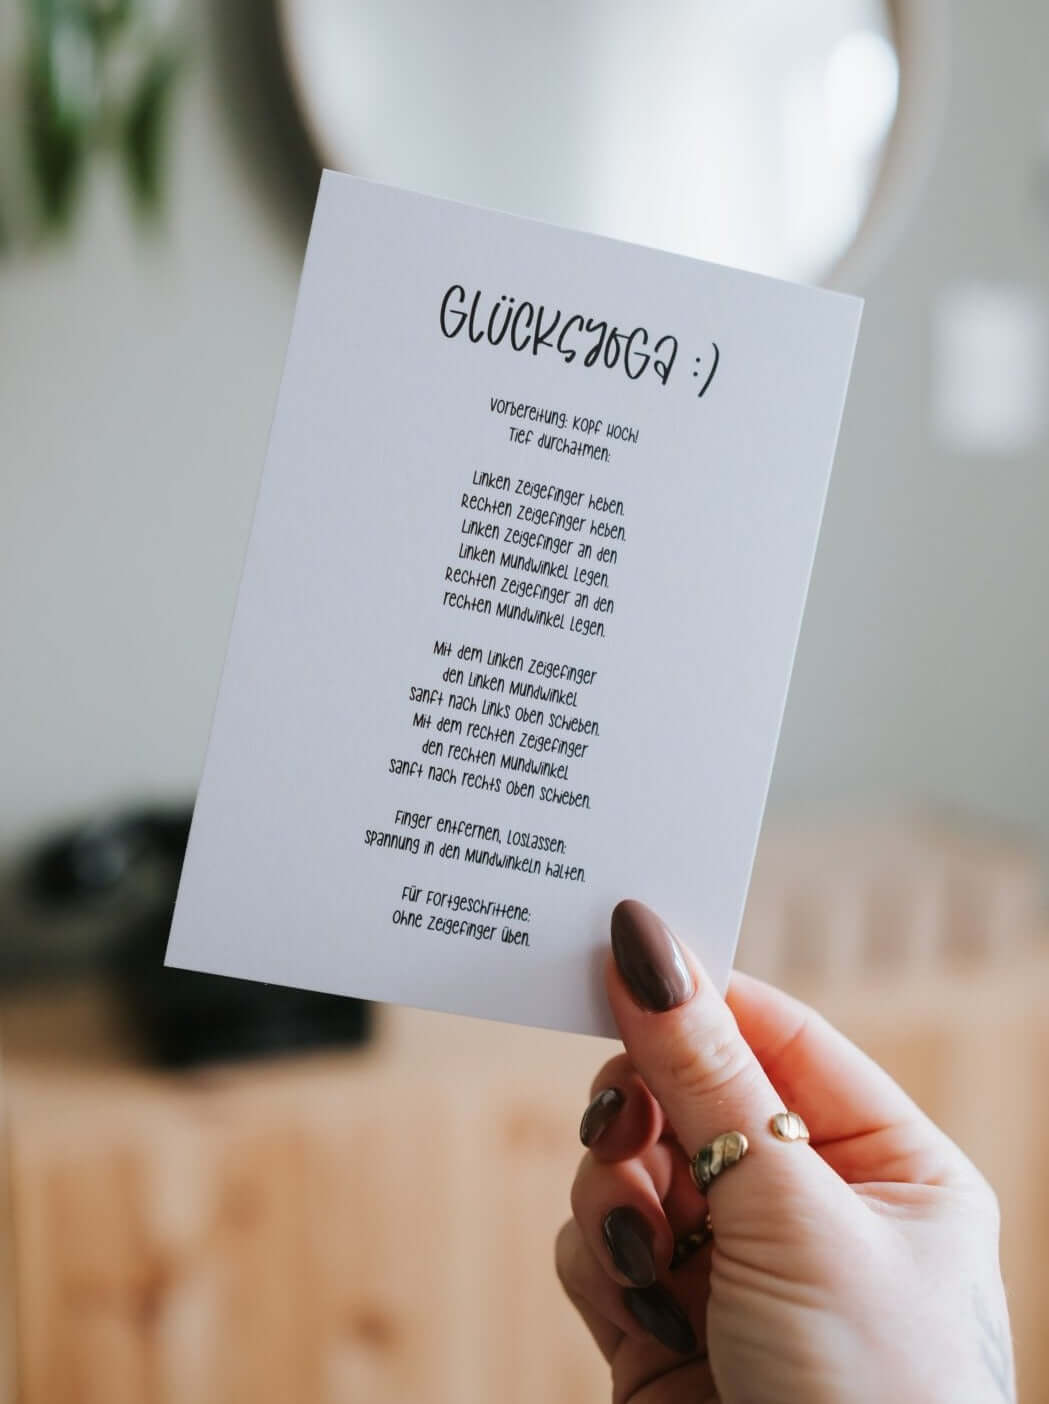 Glücksyoga :)
Vorbereitung: Kopf hoch!
Tief durchatmen:
Linken Zeigefinger heben.
Rechten Zeigefinger heben.
Linken Zeigefinger an den
linken Mundwinkel legen.
Rechten Zeigefinger an den
rechten Mundwinkel legen.
Mit dem linken Zeigefinger
den linken Mundwinkel
sanft nach links oben schieben.
Mit dem rechten Zeigefinger
den rechten Mundwinkel
sanft nach rechts oben schieben.
Finger entfernen, loslassen:
Spannung in den Mundwinkeln halten.
Für Fortgeschrittene:
Ohne Zeigefinger üben.